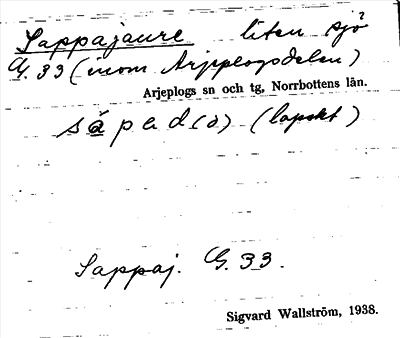 Sappajaure liten sjö ?
G. 33 (inom Arjeplogsdelen)
Arjeplogs sn och tg, Norrbottens län.
såpad(ə) (lapskt)
Sappaj. G. 33.
Sigvard Wallström, 1938.